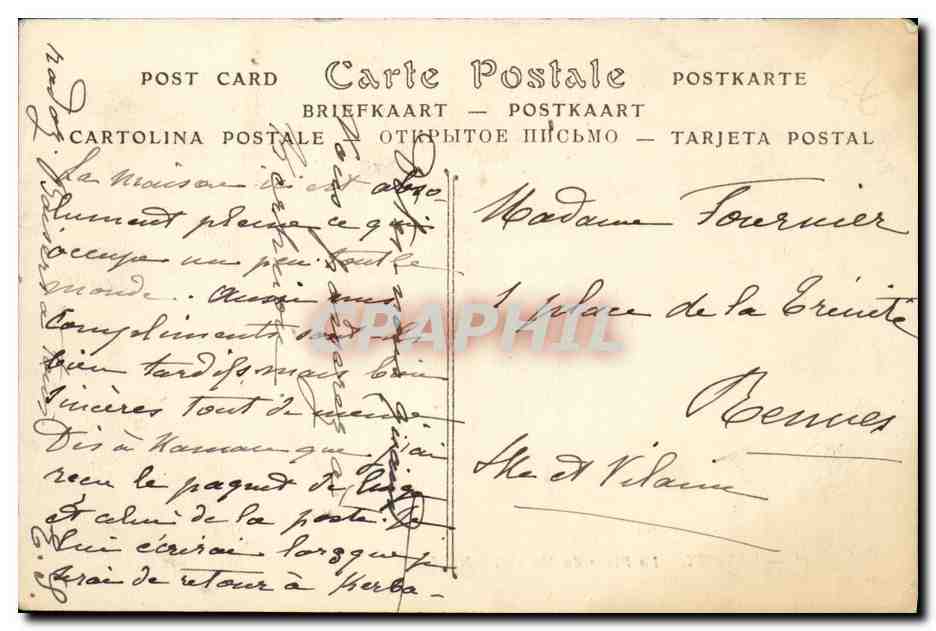 POST CARD Carte Postale POSTKARTE
BRIEFKAART — POSTKAART
CARTOLINA POSTALE — ОТКРЫТОЕ ПИСЬМО — TARJETA POSTAL
La maison ici est abso-
lument pleine ce qui
occupe un peu tout le
monde. Aussi nos
compliments sont ils
bien tardifs mais bien
sincères tout de même
Dis à Maman que j'ai
reçu le paquet de linge
et celui de la poste. Je
lui écrirai lorsque je
serai de retour à Kerba-
radoz. Baisers à tous
Madame Fournier
1 place de la Trinité
Rennes
Ille et Vilaine
CPAPHIL